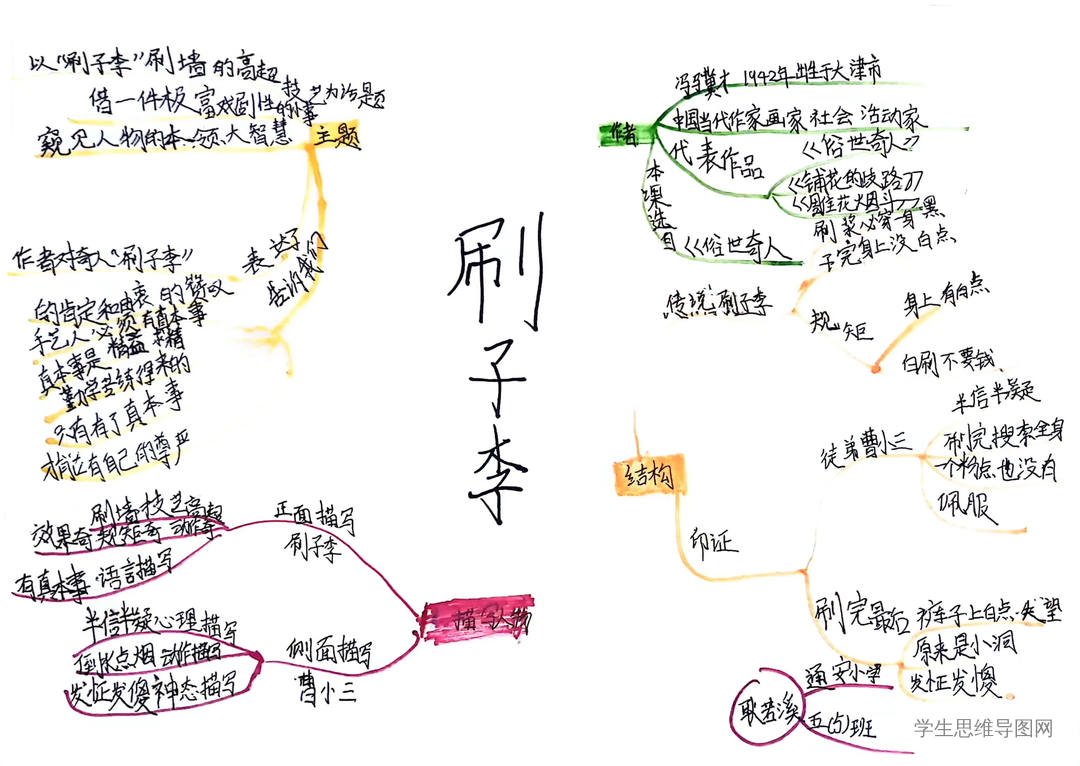 刷子李
作者
冯骥才 1942年出生于天津市
中国当代作家画家社会活动家
代表作品
《俗世奇人》
《铺花的歧路》
《雕花烟斗》
本课选自
《俗世奇人
传统:刷子李
刷浆必穿一身黑
干完身上没白点
规矩
身上有白点
白刷不要钱
结构
印证
徒弟曹小三
半信半疑
刷完搜索全身
一个粉点也没有
佩服
刷完最后
裤子上白点·失望
原来是小洞
发怔发傻
主题
以“刷子李”刷墙的高超技艺为话题
借一件极富戏剧性的事
窥见人物的本领大智慧
表达了
作者对奇人“刷子李”
的肯定和由衷的赞叹
告诉我们
手艺人必须有真本事
真本事是精益求精
勤学苦练得来的
只有有了真本事
才能有自己的尊严
描写人物
正面描写
刷子李
刷墙技艺高超
效果奇 规矩奇 动作奇
有真本事·语言描写
侧面描写
曹小三
半信半疑心理描写
倒水点烟 动作描写
发怔发傻神态描写
耿若溪
通安小学
五(5)班
学生思维导图网